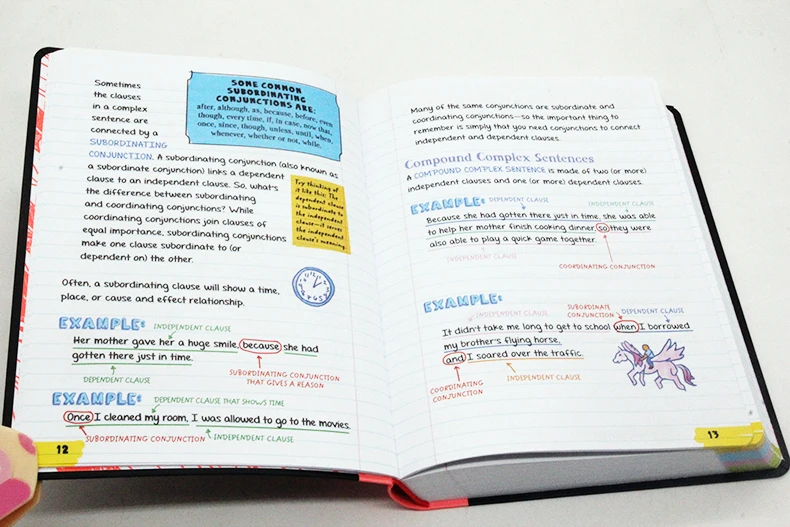 Sometimes
the clauses
in a complex
sentence are
connected by a
SUBORDINATING
CONJUNCTION. A subordinating conjunction (also known as
a subordinate conjunction) links a dependent
clause to an independent clause. So, what's
the difference between subordinating
and coordinating conjunctions? While
coordinating conjunctions join clauses of
equal importance, subordinating conjunctions
make one clause subordinate to (or
dependent on) the other.
SOME COMMON
SUBORDINATING
CONJUNCTIONS ARE:
after, although, as, because, before, even
though, every time, if, in case, now that,
once, since, though, unless, until, when,
whenever, whether or not, while.
Try thinking of
it like this: The
dependent clause
is subordinate to
the independent
clause—it serves
the independent
clause's meaning.
Often, a subordinating clause will show a time,
place, or cause and effect relationship.
EXAMPLE: INDEPENDENT CLAUSE
Her mother gave her a huge smile, because she had
gotten there just in time.
DEPENDENT CLAUSE
SUBORDINATING CONJUNCTION
THAT GIVES A REASON
EXAMPLE: DEPENDENT CLAUSE THAT SHOWS TIME
Once I cleaned my room, I was allowed to go to the movies.
SUBORDINATING CONJUNCTION INDEPENDENT CLAUSE
12
Many of the same conjunctions are subordinate and
coordinating conjunctions—so the important thing to
remember is simply that you need conjunctions to connect
independent and dependent clauses.
Compound Complex Sentences
A COMPOUND COMPLEX SENTENCE is made of two (or more)
independent clauses and one (or more) dependent clauses.
EXAMPLE: DEPENDENT CLAUSE INDEPENDENT CLAUSE
Because she had gotten there just in time, she was able
to help her mother finish cooking dinner, so they were
also able to play a quick game together.
INDEPENDENT CLAUSE
COORDINATING CONJUNCTION
EXAMPLE:
INDEPENDENT CLAUSE
SUBORDINATE
CONJUNCTION
DEPENDENT CLAUSE
It didn't take me long to get to school when I borrowed
my brother's flying horse,
and I soared over the traffic.
COORDINATING
CONJUNCTION
INDEPENDENT CLAUSE
13